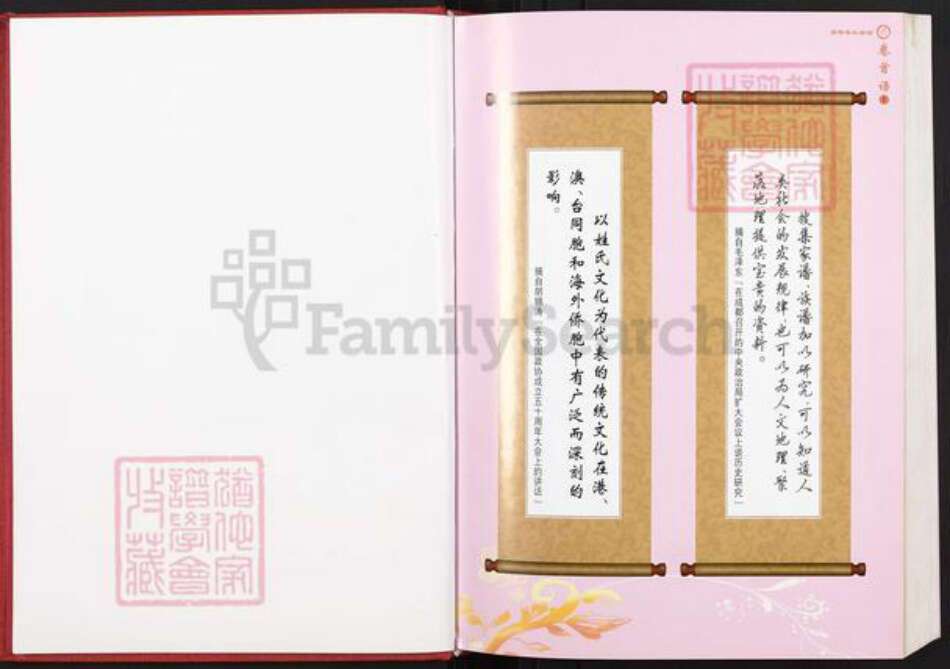 卷首语
搜集家谱、族谱加以研究,可以知道人
类社会的发展规律,也可以为人文地理、聚
落地理提供宝贵的资料。
摘自毛泽东“在成都召开的中央政治局扩大会议上谈历史研究”
以姓氏文化为代表的传统文化在港、
澳、台同胞和海外侨胞中有广泛而深刻的
影响。
摘自胡锦涛“在全国政协成立五十周年大会上的讲话”
FamilySearch
譜學會
收藏